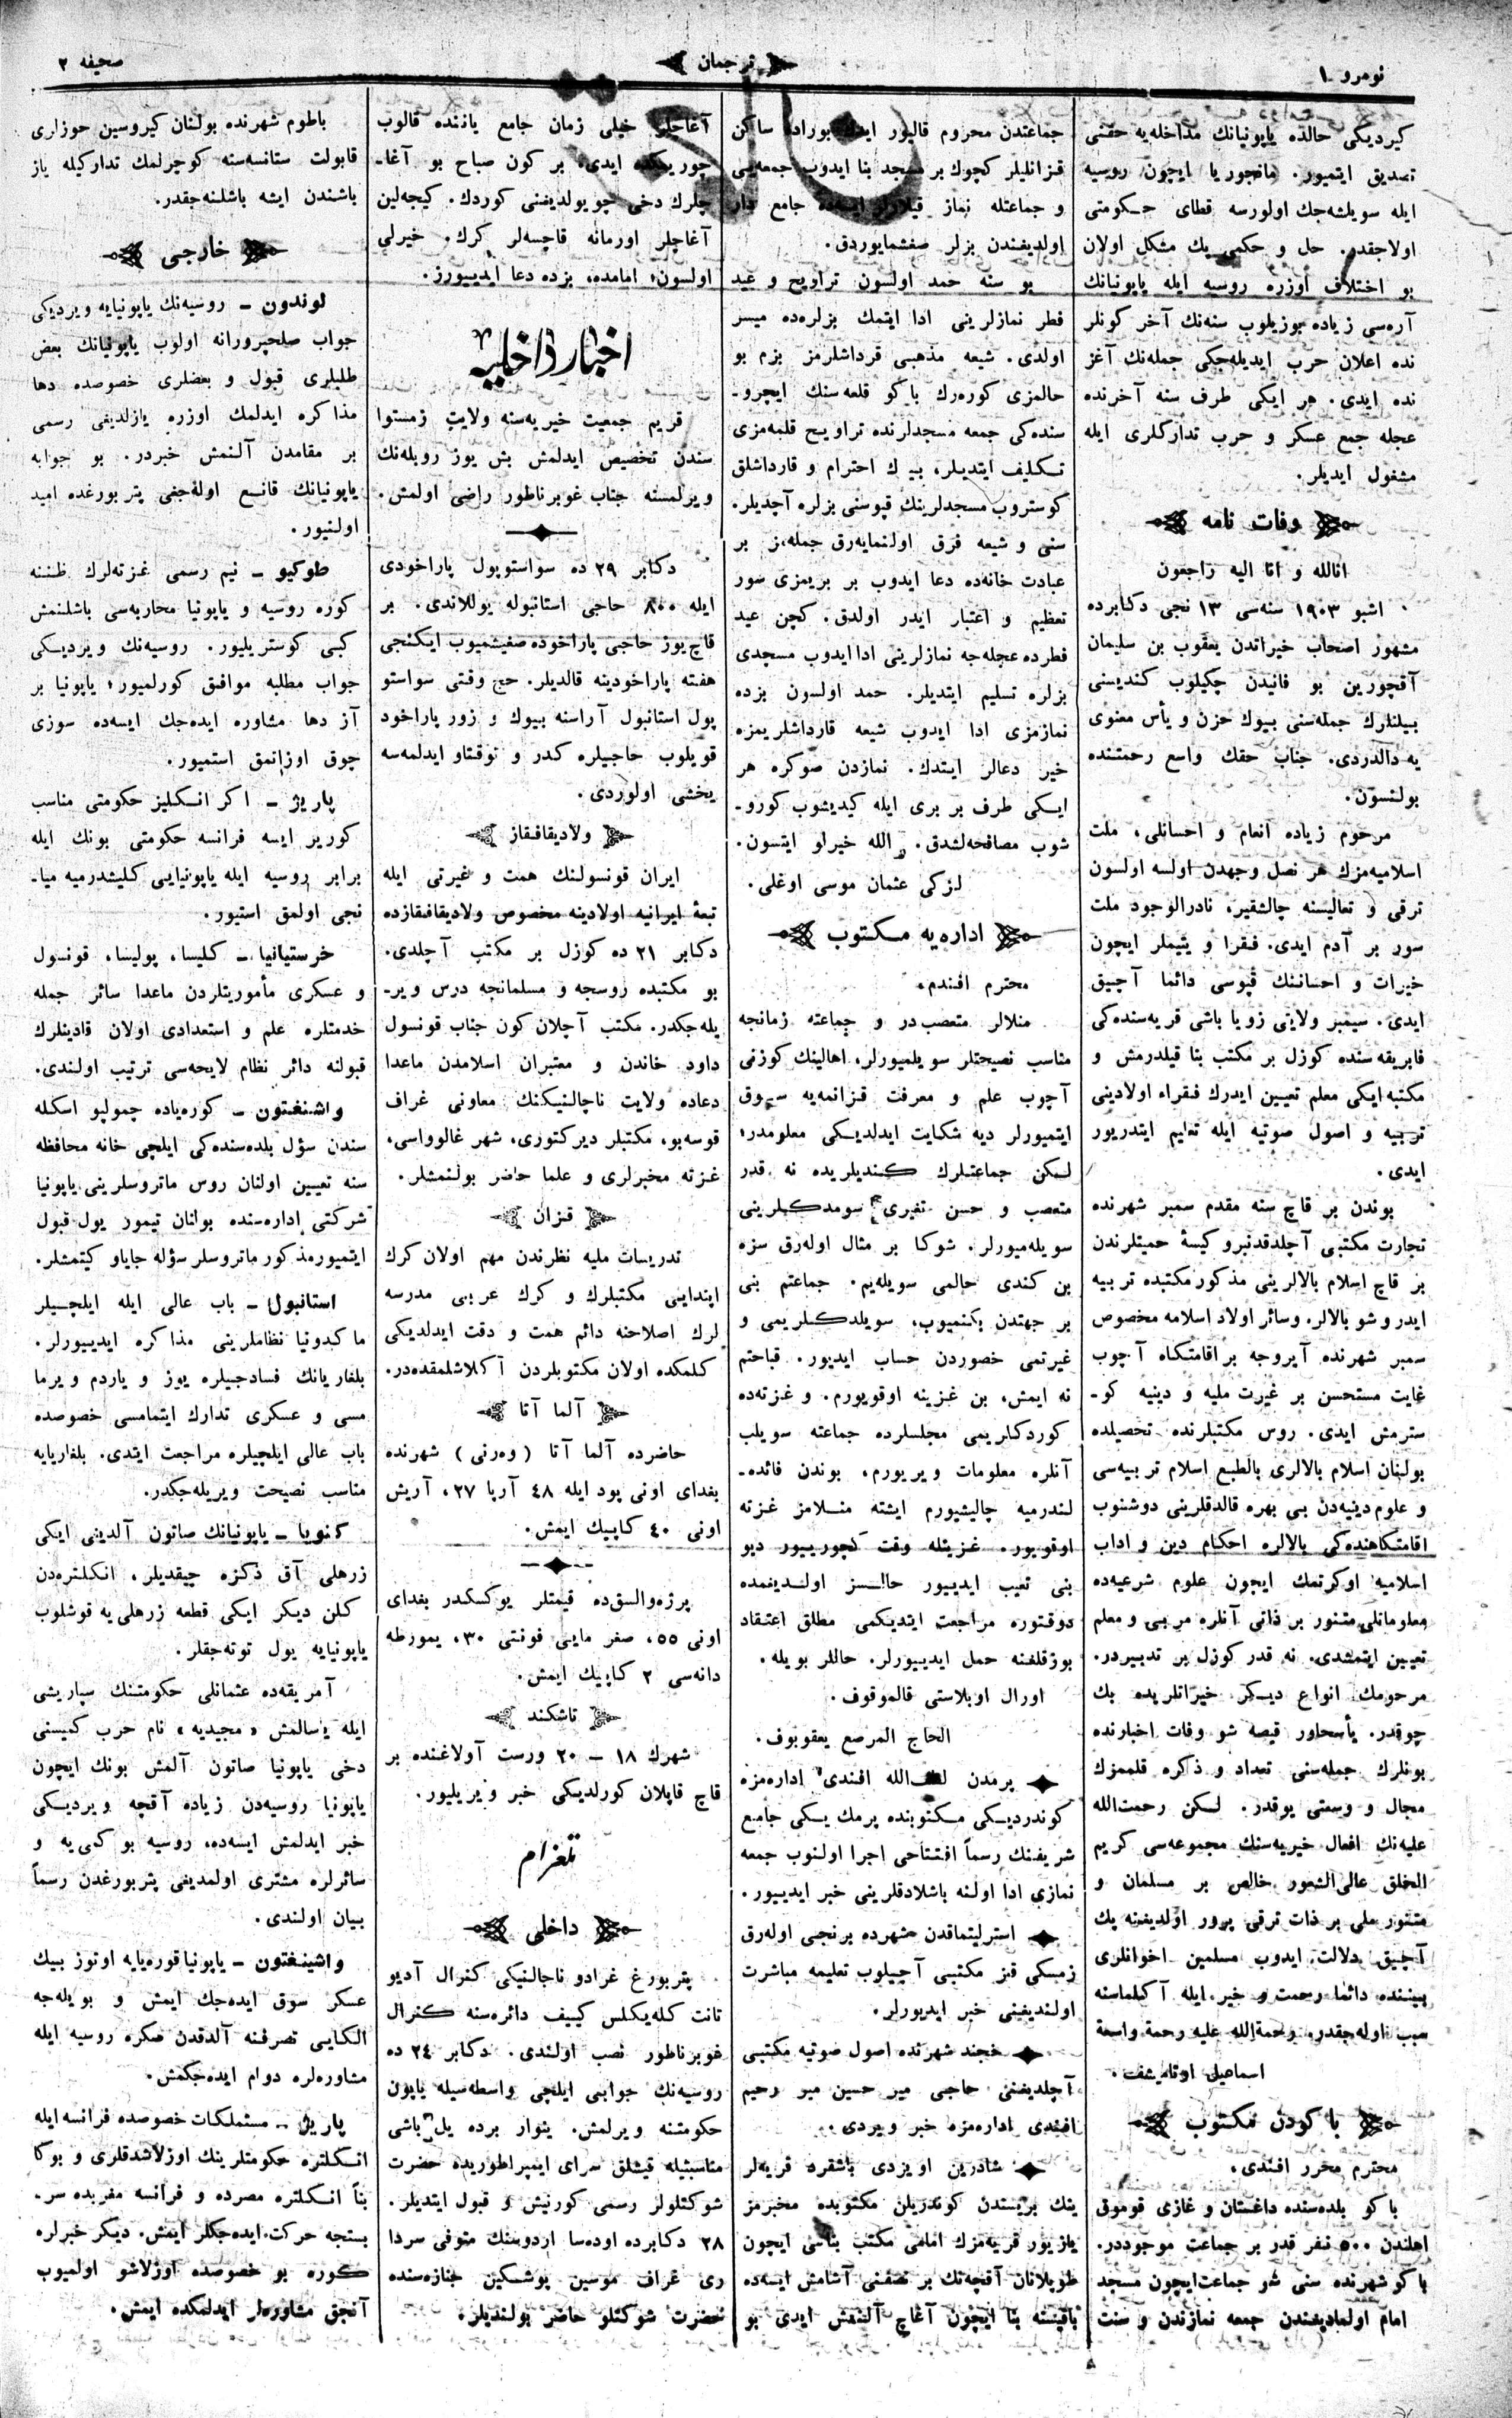 نومرو ١
ترجمان
صحيفه ٢
كيرديكى حالده ياپونيانك مداخله‌يه حقنى
تصديق ايتميور. مانچوريا ايچون روسيه
ايله سويلشه‌جك اولورسه قطاى حكومتى
اولاجقدر. حل و حكمى پك مشكل اولان
بو اختلاف اوزره روسيه ايله ياپونيانك
آره‌سى زياده بوزيلوب سنه‌نك آخر كونلر
نده اعلان حرب ايديله‌جكى جمله‌نك آغز
نده ايدى. هر ايكى طرف سنه آخرنده
عجله جمع عسكر و حرب تداركلرى ايله
مشغول ايديلر.
وفات نامه
انالله و انا اليه راجعون
اشبو ١٩٠٣ سنه‌سى ١٣ نجى دكابرده
مشهور اصحاب خيراتدن يعقوب بن سليمان
آقچورين بو فانيدن چكيلوب كنديسنى
بيلنلرك جمله‌سنى بيوك حزن و يأس معنوى
يه دالدردى. جناب حقك واسع رحمتنده
بولنسون.
مرحوم زياده انعام و احسانلى، ملت
اسلاميه‌مزك هر نصل وجهدن اولسه اولسون
ترقى و تعاليسنه چالشقير، نادرالوجود ملت
سور بر آدم ايدى. فقرا و يتيملر ايچون
خيرات و احساننك قپوسى دائما آچيق
ايدى. سيمبر ولايتى زويا باشى قريه‌سنده‌كى
فابريقه‌سنده كوزل بر مكتب بنا قيلدرمش و
مكتبه ايكى معلم تعيين ايدرك فقراء اولادينى
تربيه و اصول صوتيه ايله تعليم ايتدريور
ايدى.
بوندن بر قاچ سنه مقدم سمبر شهرنده
تجارت مكتبى آچلدقدنبرو كيسهٔ حميتلرندن
بر قاچ اسلام بالالرينى مذكور مكتبده تربيه
ايدر و شو بالالر. وسائر اولاد اسلامه مخصوص
سمبر شهرنده آيروجه بر اقامتكاه آچوب
غايت مستحسن بر غيرت مليه و دينيه كو-
سترمش ايدى. روس مكتبلرنده تحصيلده
بولنان اسلام بالالرى بالطبع اسلام تربيه‌سى
و علوم دينيه‌دن بى بهره قالدقلرينى دوشنوب
اقامتكاهنده‌كى بالالره احكام دين و اداب
اسلاميه اوكرتمك ايچون علوم شرعيه‌ده
معلوماتلى متنور بر ذاتى آنلره مربى و معلم
تعيين ايتمشدى. نه قدر كوزل بر تدبيردر.
مرحومك انواع ديكر خيراتلريده پك
چوقدر. قيصه شو وفات اخبارنده
بونلرك جمله‌سنى تعداد و ذكره قلممزك
مجال و وسعتى يوقدر. لكن رحمت‌الله
عليه‌نك افعال خيريه‌سنك مجموعه‌سى كريم
الخلق عالى‌الشعور خالص بر مسلمان و
متنور ملى بر ذات ترقى پرور اولديغنه پك
آچيق دلالت ايدوب مسلمين اخوانلرى
بيننده دائما رحمت و خير ايله آكيلماسنه
سبب اوله‌جقدر. رحمةالله عليه رحمة واسعة
اسماعيل اوتاميشف.
باكودن مكتوب
محترم محرر افندى،
باكو بلده‌سنده داغستان و غازى قوموق
اهلندن ٥٠٠ نفر قدر بر جماعت موجوددر.
باكو شهرنده سنى شو جماعت ايچون مسجد
امام اولماديغندن جمعه نمازندن و سنت
جماعتدن محروم قاليور ايدك بوراده ساكن
قزانليلر كچوك بر مسجد بنا ايدوب جمعه‌يى
و جماعتله نماز قيلارلر ايسه‌ده جامع دار
اولديغندن بزلر صغشمايوردق.
بو سنه حمد اولسون تراويح و عيد
فطر نمازلرينى ادا ايتمك بزلره‌ده ميسر
اولدى. شيعه مذهبى قرداشلرمز بزم بو
حالمزى كوره‌رك باكو قلعه‌سنك ايچرو-
سنده‌كى جمعه مسجدلرنده تراويح قلمه‌مزى
تكليف ايتديلر، بيوك احترام و قارداشلق
كوستروب مسجدلرينك قپوسنى بزلره آچديلر.
سنى و شيعه فرق اولنمايه‌رق جمله‌مز بر
عبادت خانه‌ده دعا ايدوب بر بريمزى سور
تعظيم و اعتبار ايدر اولدق. كچن عيد
فطرده عجله‌جه نمازلرينى ادا ايدوب مسجدى
بزلره تسليم ايتديلر. حمد اولسون بزده
نمازمزى ادا ايدوب شيعه قارداشلريمزه
خير دعالر ايتدك. نمازدن صوكره هر
ايكى طرف بر برى ايله كيديشوب كورو-
شوب مصافحه‌لشدق. الله خيرلو ايتسون.
لزكى عثمان موسى اوغلى.
اداره‌يه مكتوب
محترم افندم.
منلالر متعصب‌در و جماعته زمانجه
مناسب نصيحتلر سويلميورلر، اهالينك كوزنى
آچوب علم و معرفت قزانمه‌يه سوق
ايتميورلر ديه شكايت ايدلديكى معلومدر؛
لكن جماعتلرك كنديلريده نه قدر
متعصب و حسن تغيرى سومدكلرينى
سويله‌ميورلر. شوكا بر مثال اوله‌رق سزه
بن كندى حالمى سويله‌يم. جماعتم بنى
بر جهتدن بكنميوب، سويلدكلريمى و
غيرتمى خصوردن حساب ايديور. قباحتم
نه ايمش، بن غزيته اوقويورم. و غزته‌ده
كوردكلريمى مجلسلرده جماعته سويلب
آنلره معلومات ويريورم، بوندن فائده-
لندرميه چاليشيورم ايشته منلامز غزته
اوقويور. غزيتله وقت كچورييور ديو
بنى تعيب ايدييور حالسز اولديغمده
دوقتوره مراجعت ايتديكمى مطلق اعتقاد
بوزقلغنه حمل ايدييورلر. حاللر بويله.
اورال اوبلاستى قالموقوف.
الحاج المرصع يعقوبوف.
پرمدن الله افندى اداره‌مزه
كوندرديكى مكتوبنده پرمك يكى جامع
شريفنك رسماً افتتاحى اجرا اولنوب جمعه
نمازى ادا اولنه باشلادقلرينى خبر ايدييور.
استرليتماقدن شهرده برنجى اوله‌رق
زمسكى قز مكتبى آچيلوب تعليمه مباشرت
اولنديغينى خبر ايديورلر.
خجند شهرنده اصول صوتيه مكتبى
آچلديغنى حاجى مير حسين مير رحيم
افندى اداره‌مزه خبر ويردى.
شادرين اويزدى باشقرد قريه‌لر
ينك بريسندن كوندريلن مكتوبده مخبرمز
يازيور قريه‌مزك امامى مكتب بناسى ايچون
طوپلانان آقچه‌نك بر نصفنى آشامش ايسه‌ده
باقيسنه بنا ايچون آغاچ آلنمش ايدى بو
آغاجلر خيلى زمان جامع ياننده قالوب
چوريمكده ايدى، بر كون صباح بو آغا-
چلرك دخى چويولديغنى كوردك. كيجه‌لين
آغاچلر اورمانه قاچسه‌لر كرك. خيرلى
اولسون، امامده، بزده دعا ايدييورز.
اخبار داخليه
قريم جمعيت خيريه‌سنه ولايت زمستوا
سندن تخصيص ايدلمش بش يوز روبله‌نك
ويرلمسنه جناب غوبرناطور راضى اولمش.
دكابر ٢٩ ده سواستوپول پاراخودى
ايله ٨٠٠ حاجى استانبوله يوللاندى. بر
قاچ يوز حاجى پاراخوده صغيشميوب ايكنجى
هفته پاراخودينه قالديلر. حج وقتى سواستو
پول استانبول آراسنه بيوك و زور پاراخود
قويلوب حاجيلره كدر و توقتاو ايدلمه‌سه
يخشى اولوردى.
ولاديقافقاز
ايران قونسولنك همت و غيرتى ايله
تبعهٔ ايرانيه اولادينه مخصوص ولاديقافقازده
دكابر ٢١ ده كوزل بر مكتب آچلدى.
بو مكتبده روسجه و مسلمانجه درس وير-
يله‌جكدر. مكتب آچلان كون جناب قونسول
داود خاندن و معتبران اسلامدن ماعدا
دعاده ولايت ناچالنيكنك معاونى غراف
قوسه‌بو، مكتبلر ديركتورى، شهر غالوواسى،
غزته مخبرلرى و علما حاضر بولنمشلر.
قزان
تدريسات مليه نظرندن مهم اولان كرك
ابتدايى مكتبلرك و كرك عربى مدرسه
لرك اصلاحنه دائم همت و دقت ايدلديكى
كلمكده اولان مكتوبلردن آكلاشلمقده‌در.
آلما آتا
حاضرده آلما آتا (وه‌رنى) شهرنده
بغداى اونى پود ايله ٤٨ آرپا ٢٧، آريش
اونى ٤٠ كاپيك ايمش.
پرژه‌والسق‌ده قيمتلر يوكسكدر بغداى
اونى ٥٥، صغر مايى فونتى ٣٠، يمورطه
دانه‌سى ٢ كاپيك ايمش.
تاشكند
شهرك ١٨ – ٢٠ ورست آولاغنده بر
قاچ قاپلان كورلديكى خبر ويريليور.
تلغرام
داخلى
پتربورغ غرادو ناچالنيكى كنرال آديو
تانت كله‌يكلس كييف دائره‌سنه كنرال
غوبرناطور نصب اولندى. دكابر ٢٤ ده
روسيه‌نك جوابى ايلچى واسطه‌سيله ياپون
حكومتنه ويرلمش. ينوار برده يل باشى
مناسبتيله قيشلق سراى ايمپراطوريده حضرت
شوكتلولر رسمى كورنيش و قبول ايتديلر.
٢٨ دكابرده اوده‌سا اردوسنك متوفى سردا
رى غراف موسين پوشكين جنازه‌سنده
حضرت شوكتلو حاضر بولنديلر.
باطوم شهرنده بولنان كيروسين حوزارى
قابولت ستانسه‌سنه كوچرلمك تداركيله ياز
باشندن ايشه باشلنه‌جقدر.
خارجى
لوندون – روسيه‌نك ياپونيايه ويرديكى
جواب صلحپرورانه اولوب ياپونيانك بعض
طلبلرى قبول و بعضلرى خصوصده دها
مذاكره ايدلمك اوزره يازلديغى رسمى
بر مقامدن آلنمش خبردر. بو جوابه
ياپونيانك قانع اوله‌جغى پتربورغده اميد
اولنيور.
طوكيو – نيم رسمى غزته‌لرك ظننه
كوره روسيه و ياپونيا محاربه‌سى باشلنمش
كبى كوستريليور. روسيه‌نك ويرديكى
جواب مطلبه موافق كورلميور؛ ياپونيا بر
آز دها مشاوره ايده‌جك ايسه‌ده سوزى
چوق اوزاتمق استميور.
پاريژ – اكر انكليز حكومتى مناسب
كورير ايسه فرانسه حكومتى بونك ايله
برابر روسيه ايله ياپونيايى كليشدرميه ميا-
نجى اولمق استيور.
خرستيانيا – كليسا، پوليسا، قونسول
و عسكرى مأموريتلردن ماعدا سائر جمله
خدمتلره علم و استعدادى اولان قادينلرك
قبولنه دائر نظام لايحه‌سى ترتيب اولندى.
واشنغتون – كوره‌ياده چمولپو اسكله
سندن سؤل بلده‌سنده‌كى ايلچى خانه محافظه
سنه تعيين اولنان روس ماتروسلرينى ياپونيا
شركتى اداره‌سنده بولنان تيمور يول قبول
ايتميور مذكور ماتروسلر سؤله جاياو كيتمشلر.
استانبول – باب عالى ايله ايلچيلر
ماكدونيا نظاملرينى مذاكره ايدييورلر.
بلغاريانك فسادجيلره يوز و ياردم ويرما
مسى و عسكرى تدارك ايتمامسى خصوصده
باب عالى ايلچيلره مراجعت ايتدى. بلغاريايه
مناسب نصيحت ويريله‌جكدر.
كنويا – ياپونيانك صاتون آلدينى ايكى
زرهلى آق دكزه چيقديلر، انكلتره‌دن
كلن ديكر ايكى قطعه زرهلى‌يه قوشلوب
ياپونيايه يول توته‌جقلر.
آمريقه‌ده عثمانلى حكومتنك سپاريشى
ايله ياسالمش «مجيديه» نام حرب كميسنى
دخى ياپونيا صاتون آلمش بونك ايچون
ياپونيا روسيه‌دن زياده آقچه ويرديكى
خبر ايدلمش ايسه‌ده، روسيه بو كمى‌يه و
سائرلره مشترى اولمديغى پتربورغدن رسماً
بيان اولندى.
واشينغتون – ياپونيا قوره‌يايه اوتوز بيك
عسكر سوق ايده‌جك ايمش و بويله‌جه
الكايى تصرفنه آلدقدن صكره روسيه ايله
مشاوره‌لره دوام ايده‌جكمش.
پاريژ – مستملكات خصوصده فرانسه ايله
انكلتره حكومتلرينك اوزلاشدقلرى و بوكا
بناً انكلتره مصرده و فرانسه مغربده سر-
بستجه حركت ايده‌جكلر ايمش. ديكر خبرلره
كوره بو خصوصده اوزلاشو اولميوب
آنجق مشاوره‌لر ايدلمكده ايمش.